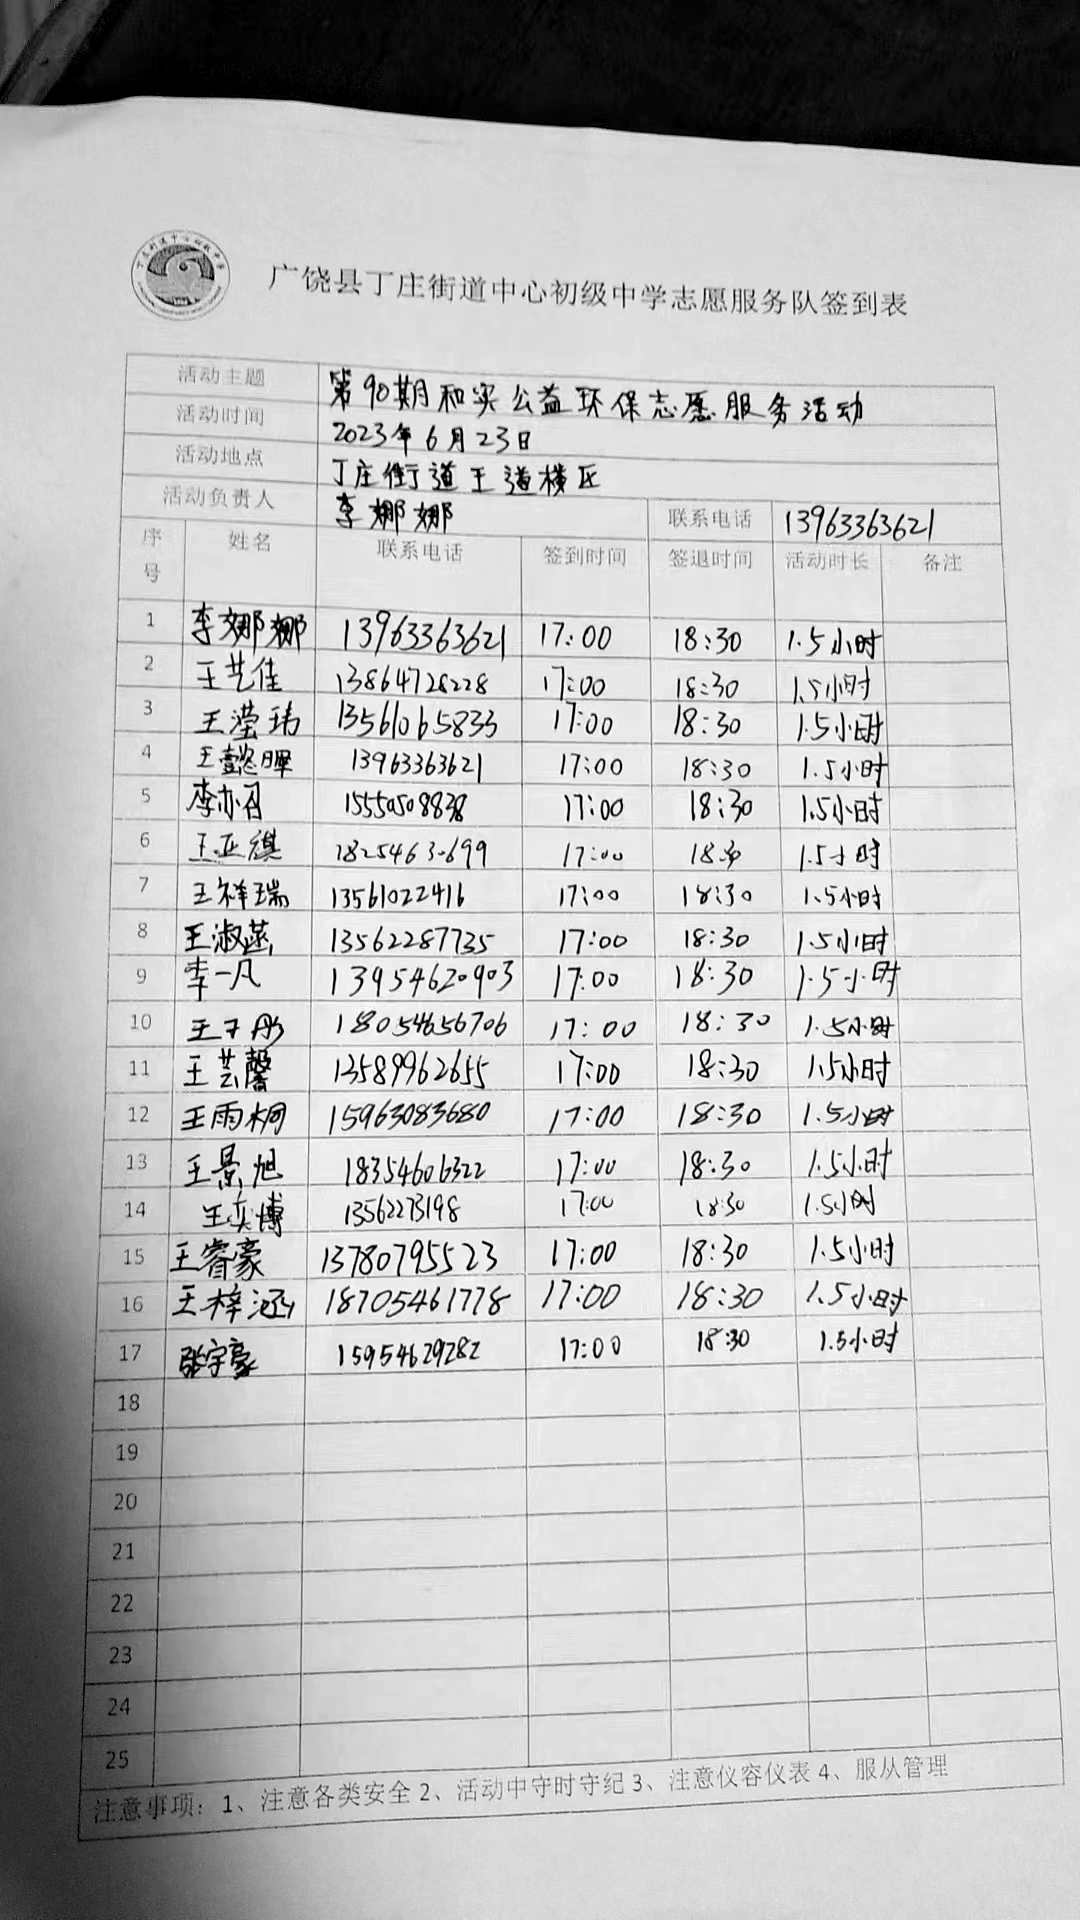 广饶县丁庄街道中心初级中学志愿服务队签到表
活动主题 第90期和实公益环保志愿服务活动
活动时间 2023年6月23日
活动地点 丁庄街道王道楼区
活动负责人 李娜娜 联系电话 13963363621
序号 姓名 联系电话 签到时间 签退时间 活动时长 备注
1 李娜娜 13963363621 17:00 18:30 1.5小时
2 王艺佳 13864728228 17:00 18:30 1.5小时
3 王滢玮 13561065833 17:00 18:30 1.5小时
4 王懿晖 13963363621 17:00 18:30 1.5小时
5 李亦召 15550508838 17:00 18:30 1.5小时
6 王亚祺 17:00 1.5小时
7 王祥瑞 13561022416 17:00 18:30 1.5小时
8 王淑菡 13562287735 17:00 18:30 1.5小时
9 李一凡 13954620903 17:00 18:30 1.5小时
10 王子彤 18054656706 17:00 18:30 1.5小时
11 王芸馨 13589962655 17:00 18:30 1.5小时
12 王雨桐 15963083680 17:00 18:30 1.5小时
13 王景旭 18354606322 17:00 18:30 1.5小时
14 王奕博 13562273198 17:00 18:30 1.5小时
15 王睿豪 13780795523 17:00 18:30 1.5小时
16 王梓涵 18705461778 17:00 18:30 1.5小时
17 张宇豪 15954629282 17:00 18:30 1.5小时
18
19
20
21
22
23
24
25
注意事项：1、注意各类安全 2、活动中守时守纪 3、注意仪容仪表 4、服从管理